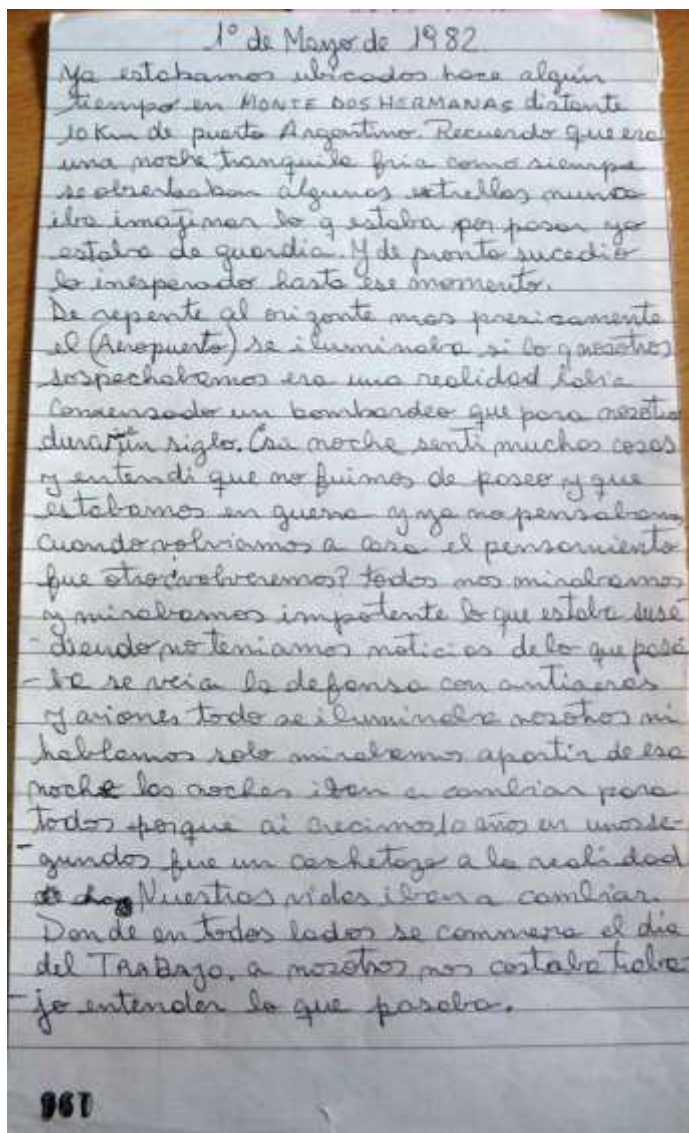 1° de Mayo de 1982
Ya estabamos ubicados hace algún
tiempo en MONTE DOS HERMANAS distante
10 Km de puerto Argentino. Recuerdo que era
una noche tranquila fria como siempre
se observaban algunas estrellas nunca
iba imajinar lo q estaba por pasar yo
estaba de guardia. Y de pronto sucedio
lo inesperado hasta ese momento.
De repente al orizonte mas presisamente
el (Aeropuerto) se iluminaba si lo q nosotros
sospechabamos era una realidad habia
comensado un bombardeo que para nosotros
duraría un siglo. Esa noche senti muchas cosas
y entendi que no fuimos de paseo y que
estabamos en guerra y ya no pensabamos
cuando volviamos a casa el pensamiento
fue otro ¿volveremos? todos nos mirabamos
y mirabamos impotente lo que estaba suse
-diendo no teniamos noticias de lo que pasa
-ba se veia la defensa con antiaeras
y aviones todo se iluminaba nosotros ni
hablamos solo mirabamos apartir de esa
noche las noches iban a cambiar para
todos porque ai crecimos 10 años en unos se-
-gundos fue un cachetazo a la realidad
Nuestras vidas iban a cambiar.
Donde en todos lados se commera el dia
del TRABAJO. a nosotros nos costaba traba
-jo entender lo que pasaba.
196